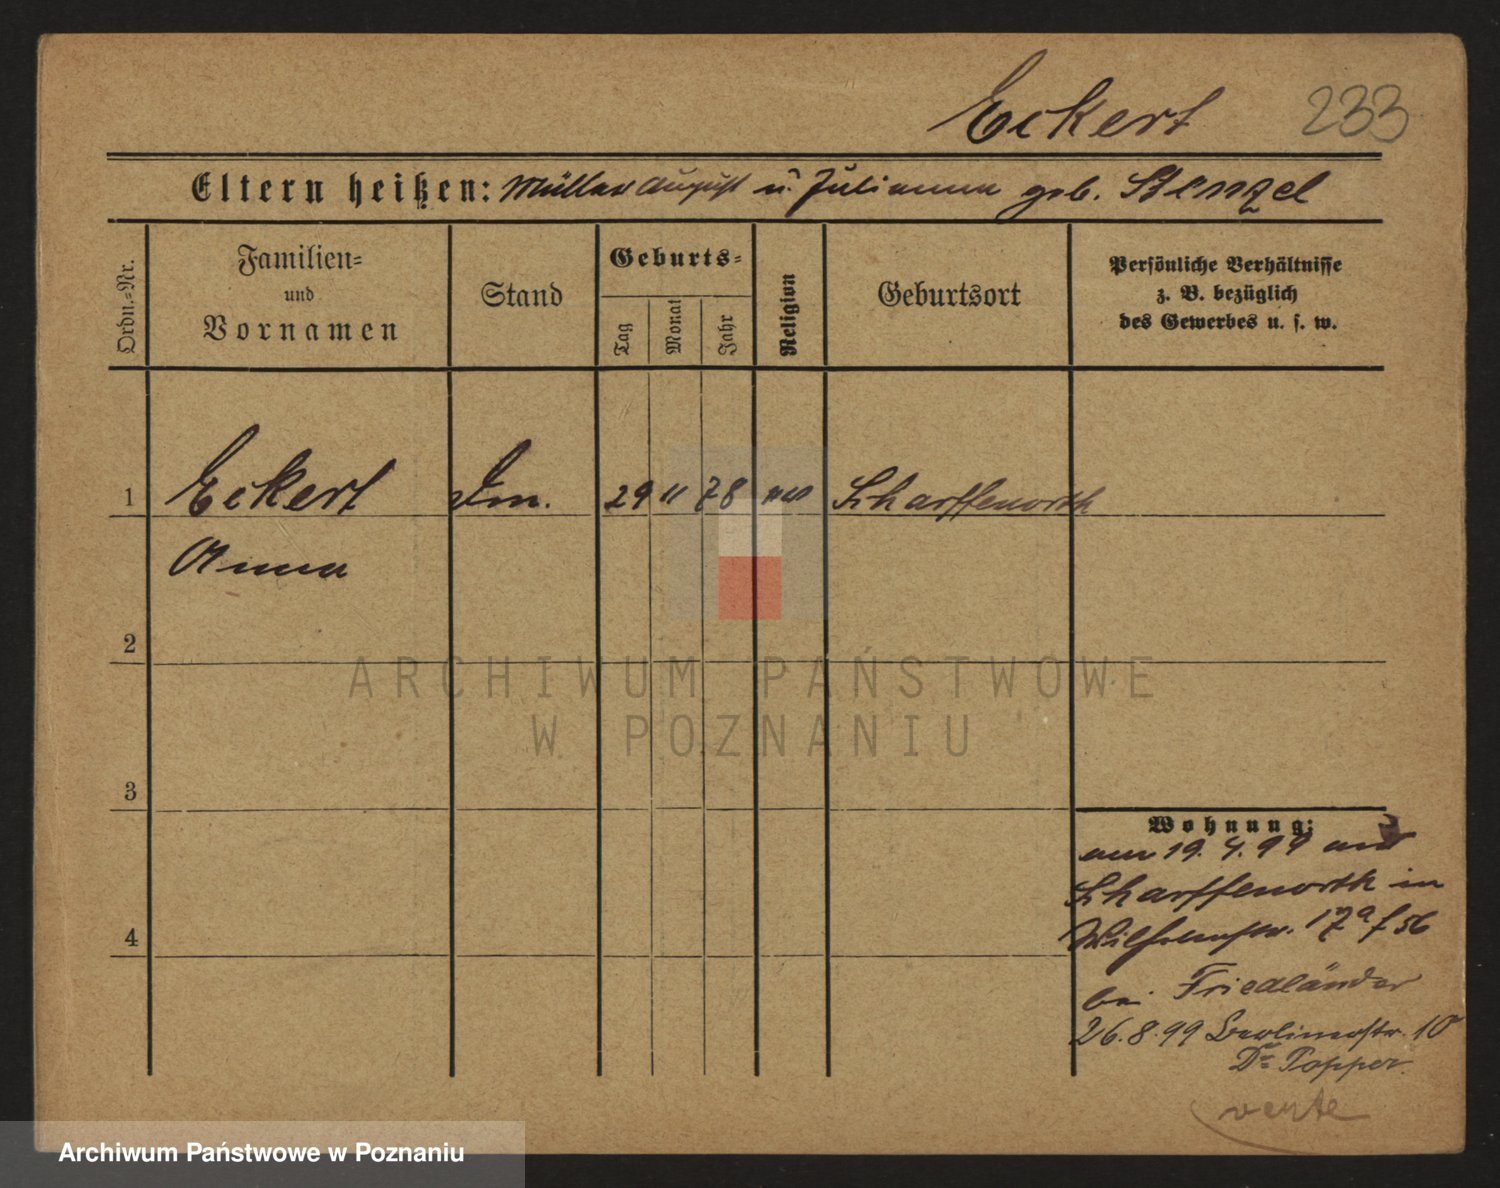 Eckert 233
Eltern heißen: Müller August u. Julianna geb. Stenzel
Ordn.=Nr.
Familien=
und
Vornamen
Stand
Geburts=
Tag
Monat
Jahr
Religion
Geburtsort
Persönliche Verhältnisse
z. B. bezüglich
des Gewerbes u. s. w.
1 Eckert 29 11 78 Scharffenorth
Anna
2
3
Wohnung:
am 19. 4. 99 aus
Scharffenorth in
4
Wilhelmstr. 17a
bei Friedländer
26. 8. 99 Berlinerstr. 10
Dr. Popper.
verte
ARCHIWUM PAŃSTWOWE
W POZNANIU
Archiwum Państwowe w Poznaniu